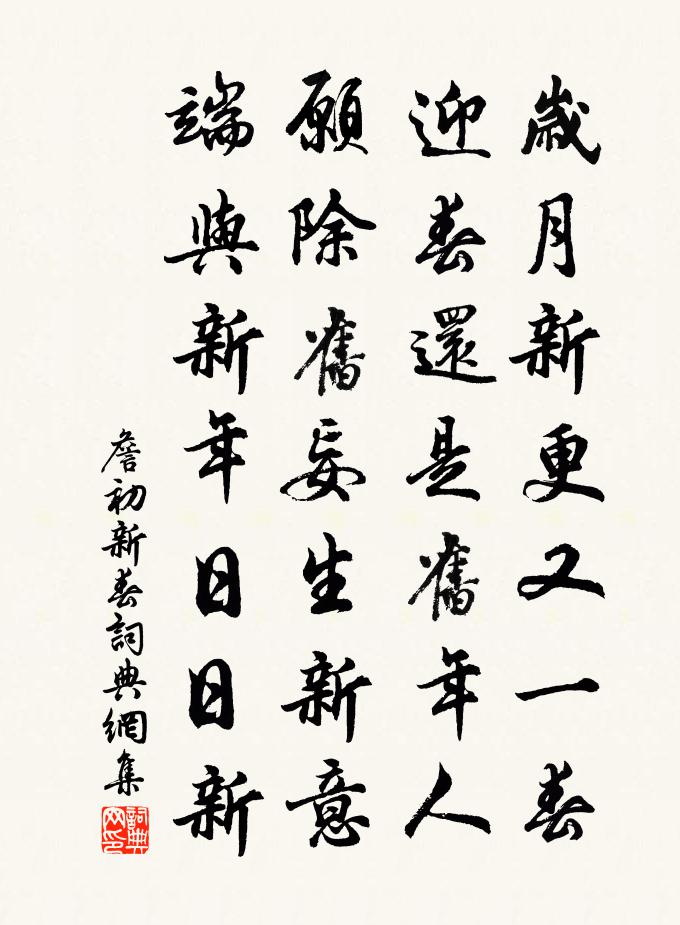 歲月新更又一春
迎春還是舊年人
願除舊妄生新意
端與新年日日新
詹初新春詞典網集
詞典網印